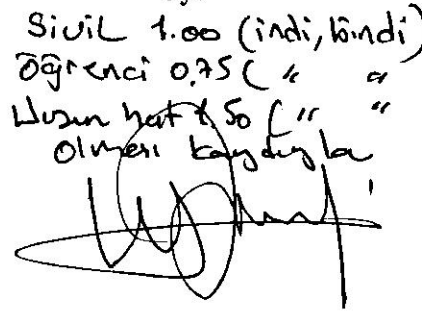 Sivil 1.00 (indi, bindi)
Öğrenci 0,75 ( " "
Uzun hat 1.50 ( " "
Olması kaydıyla